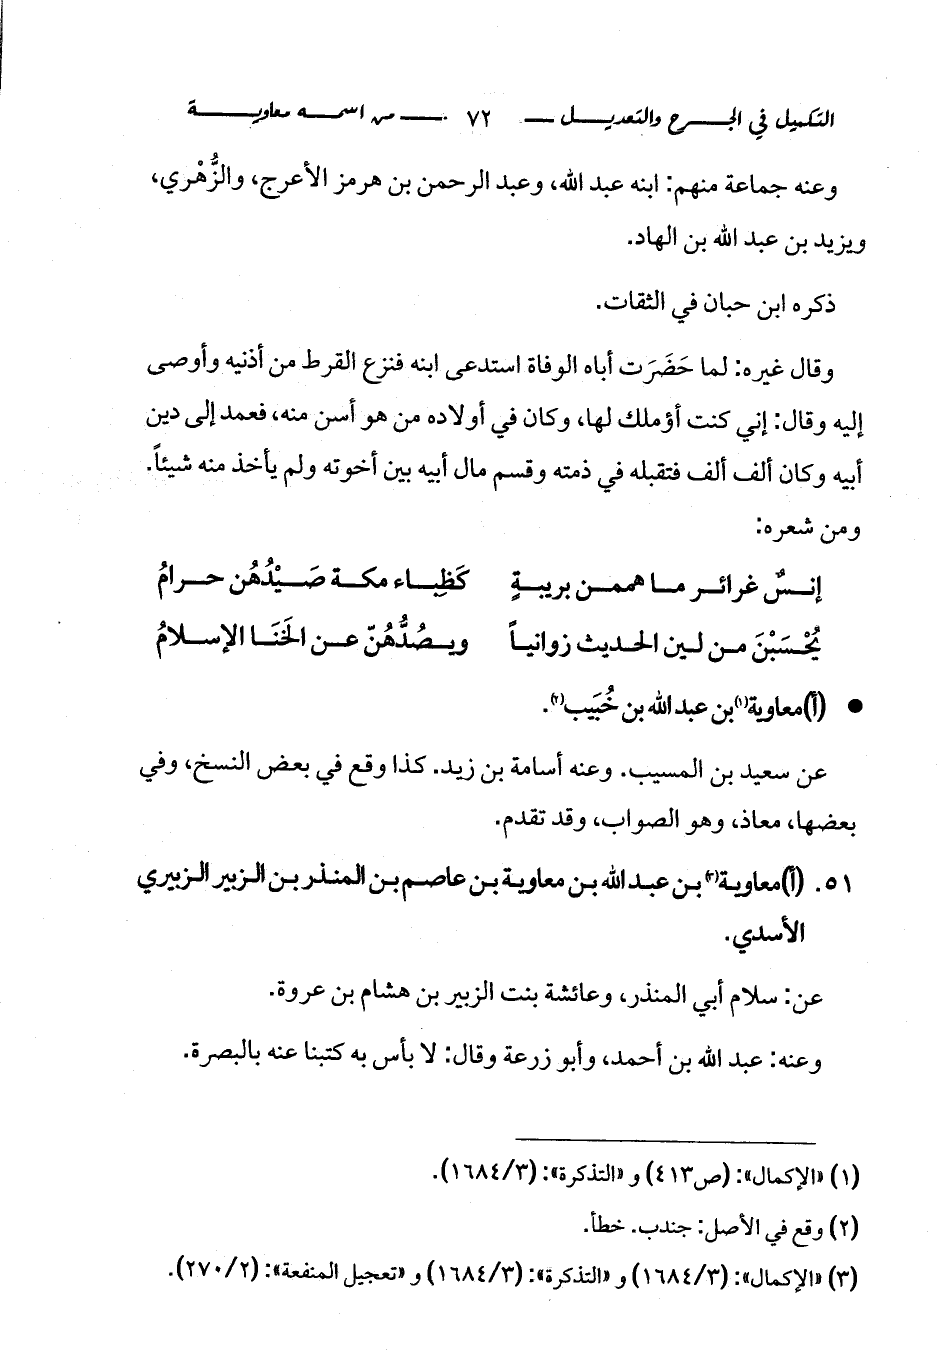 التكميل في الجرح والتعديل ٧٢ من اسمه معاوية
وعنه جماعة منهم: ابنه عبد الله، وعبد الرحمن بن هرمز الأعرج، والزُّهْري،
ويزيد بن عبد الله بن الهاد.
ذكره ابن حبان في الثقات.
وقال غيره: لما حَضَرَت أباه الوفاة استدعى ابنه فنزع القرط من أذنيه وأوصى
إليه وقال: إني كنت أؤملك لها، وكان في أولاده من هو أسن منه، فعمد إلى دين
أبيه وكان ألف ألف فتقبله في ذمته وقسم مال أبيه بين أخوته ولم يأخذ منه شيئاً.
ومن شعره:
إنسٌ غرائر ما هممن بريبةٍ كَظِباء مكة صَيْدُهُن حرامُ
يُحْسَبْنَ من لين الحديث زوانياً ويصُدُّهُنّ عن الخَنَا الإسلامُ
● (أ) معاوية(١) بن عبد الله بن خُبَيب(٢).
عن سعيد بن المسيب. وعنه أسامة بن زيد. كذا وقع في بعض النسخ، وفي
بعضها، معاذ، وهو الصواب، وقد تقدم.
٥١. (أ) معاوية(٣) بن عبد الله بن معاوية بن عاصم بن المنذر بن الزبير الزبيري
الأسدي.
عن: سلام أبي المنذر، وعائشة بنت الزبير بن هشام بن عروة.
وعنه: عبد الله بن أحمد، وأبو زرعة وقال: لا بأس به كتبنا عنه بالبصرة.
(١) «الإكمال»: (ص٤١٣) و «التذكرة»: (١٦٨٤/٣).
(٢) وقع في الأصل: جندب. خطأ.
(٣) «الإكمال»: (١٦٨٤/٣) و «التذكرة»: (١٦٨٤/٣) و «تعجيل المنفعة»: (٢٧٠/٢).